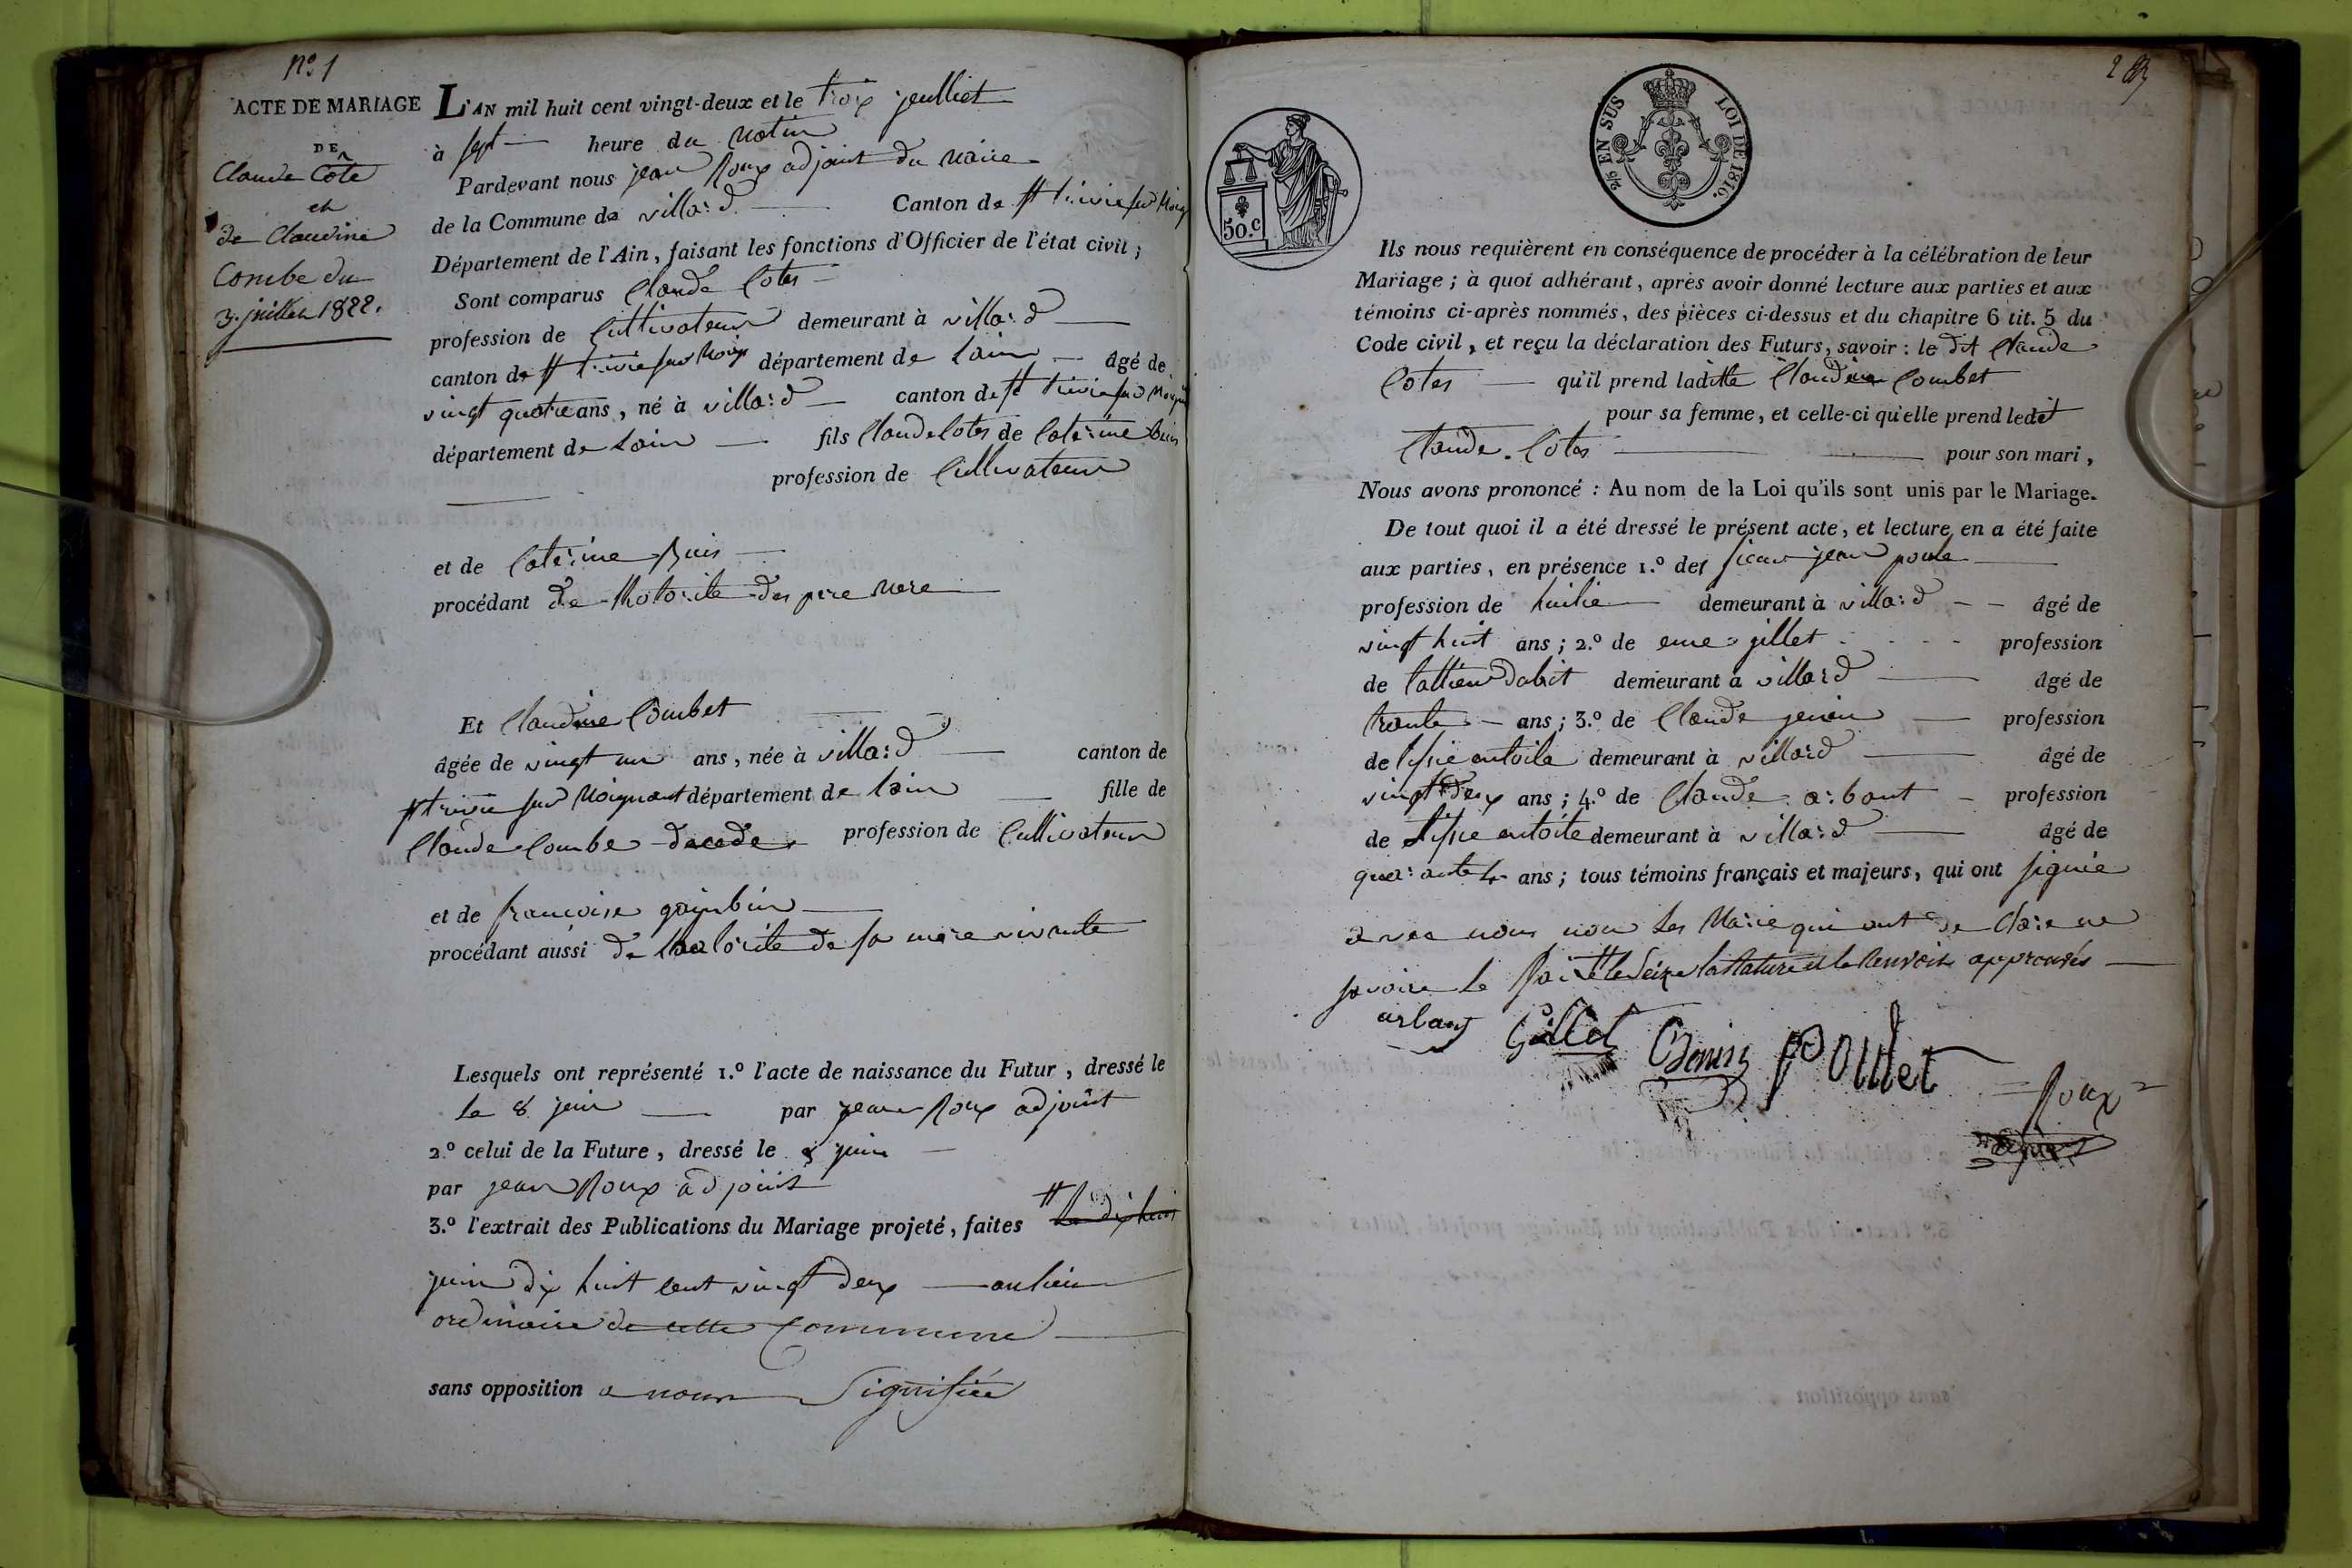 nº 1
ACTE DE MARIAGE
DE
Claude Cote
et
de Claudine
Combe du
3. juillet 1822.
L'AN mil huit cent vingt-deux et le trois jeulliet
à sept heure du matin
Pardevant nous jean Roux adjoint du maire
de la Commune de villard Canton de st trivie sur Moig
Département de l'Ain, faisant les fonctions d'Officier de l'état civil;
Sont comparus Claude Cotes
profession de Cultivateur demeurant à villard
canton de st trivie sur Moig département de Lain âgé de
vingt quatre ans, né à villard canton de st trivie sur Moig
département de Lain fils Claude Cotes de Caterine buis
profession de Cultivateur
et de Caterine buis
procédant de Lhotorite des pere mere
Et Claudine Combet
âgée de vingt un ans, née à villard canton de
st trivie sur Moignant département de Lain fille de
Claude Combe decede profession de Cultivateur
et de francoise
procédant aussi de de sa mere vivente
Lesquels ont représenté 1.º l'acte de naissance du Futur, dressé le
le 8 juin par jean Roux adjoint
2.º celui de la Future, dressé le 8 juin
par jean Roux adjoint
3.º l'extrait des Publications du Mariage projeté, faites
juin dix huit cent vingt deux au lieu
ordinaire de cette Commune
sans opposition a nous Signifiée
EN SUS LOI DE 1816.
50.c
Ils nous requièrent en conséquence de procéder à la célébration de leur
Mariage; à quoi adhérant, après avoir donné lecture aux parties et aux
témoins ci-après nommés, des pièces ci-dessus et du chapitre 6 tit. 5 du
Code civil, et reçu la déclaration des Futurs, savoir: le dit Claude
Cotes qu'il prend laditte Claudine Combet
pour sa femme, et celle-ci qu'elle prend ledit
Claude Cotes pour son mari,
Nous avons prononcé: Au nom de la Loi qu'ils sont unis par le Mariage.
De tout quoi il a été dressé le présent acte, et lecture en a été faite
aux parties, en présence 1.º de sieur jean
profession de huilie demeurant à villard âgé de
vingt huit ans; 2.º de eme gillet profession
de tallieur dabit demeurant à villard âgé de
trante ans; 3.º de Claude jenin profession
de demeurant à villard âgé de
vingt deux ans; 4.º de Claude arbant profession
de demeurant à villard âgé de
ans; tous témoins français et majeurs, qui ont signié
avec nous non les Marie qui ont de Clare ne
savoire le approuvés
arband Gillet Genin Poulet
Roux